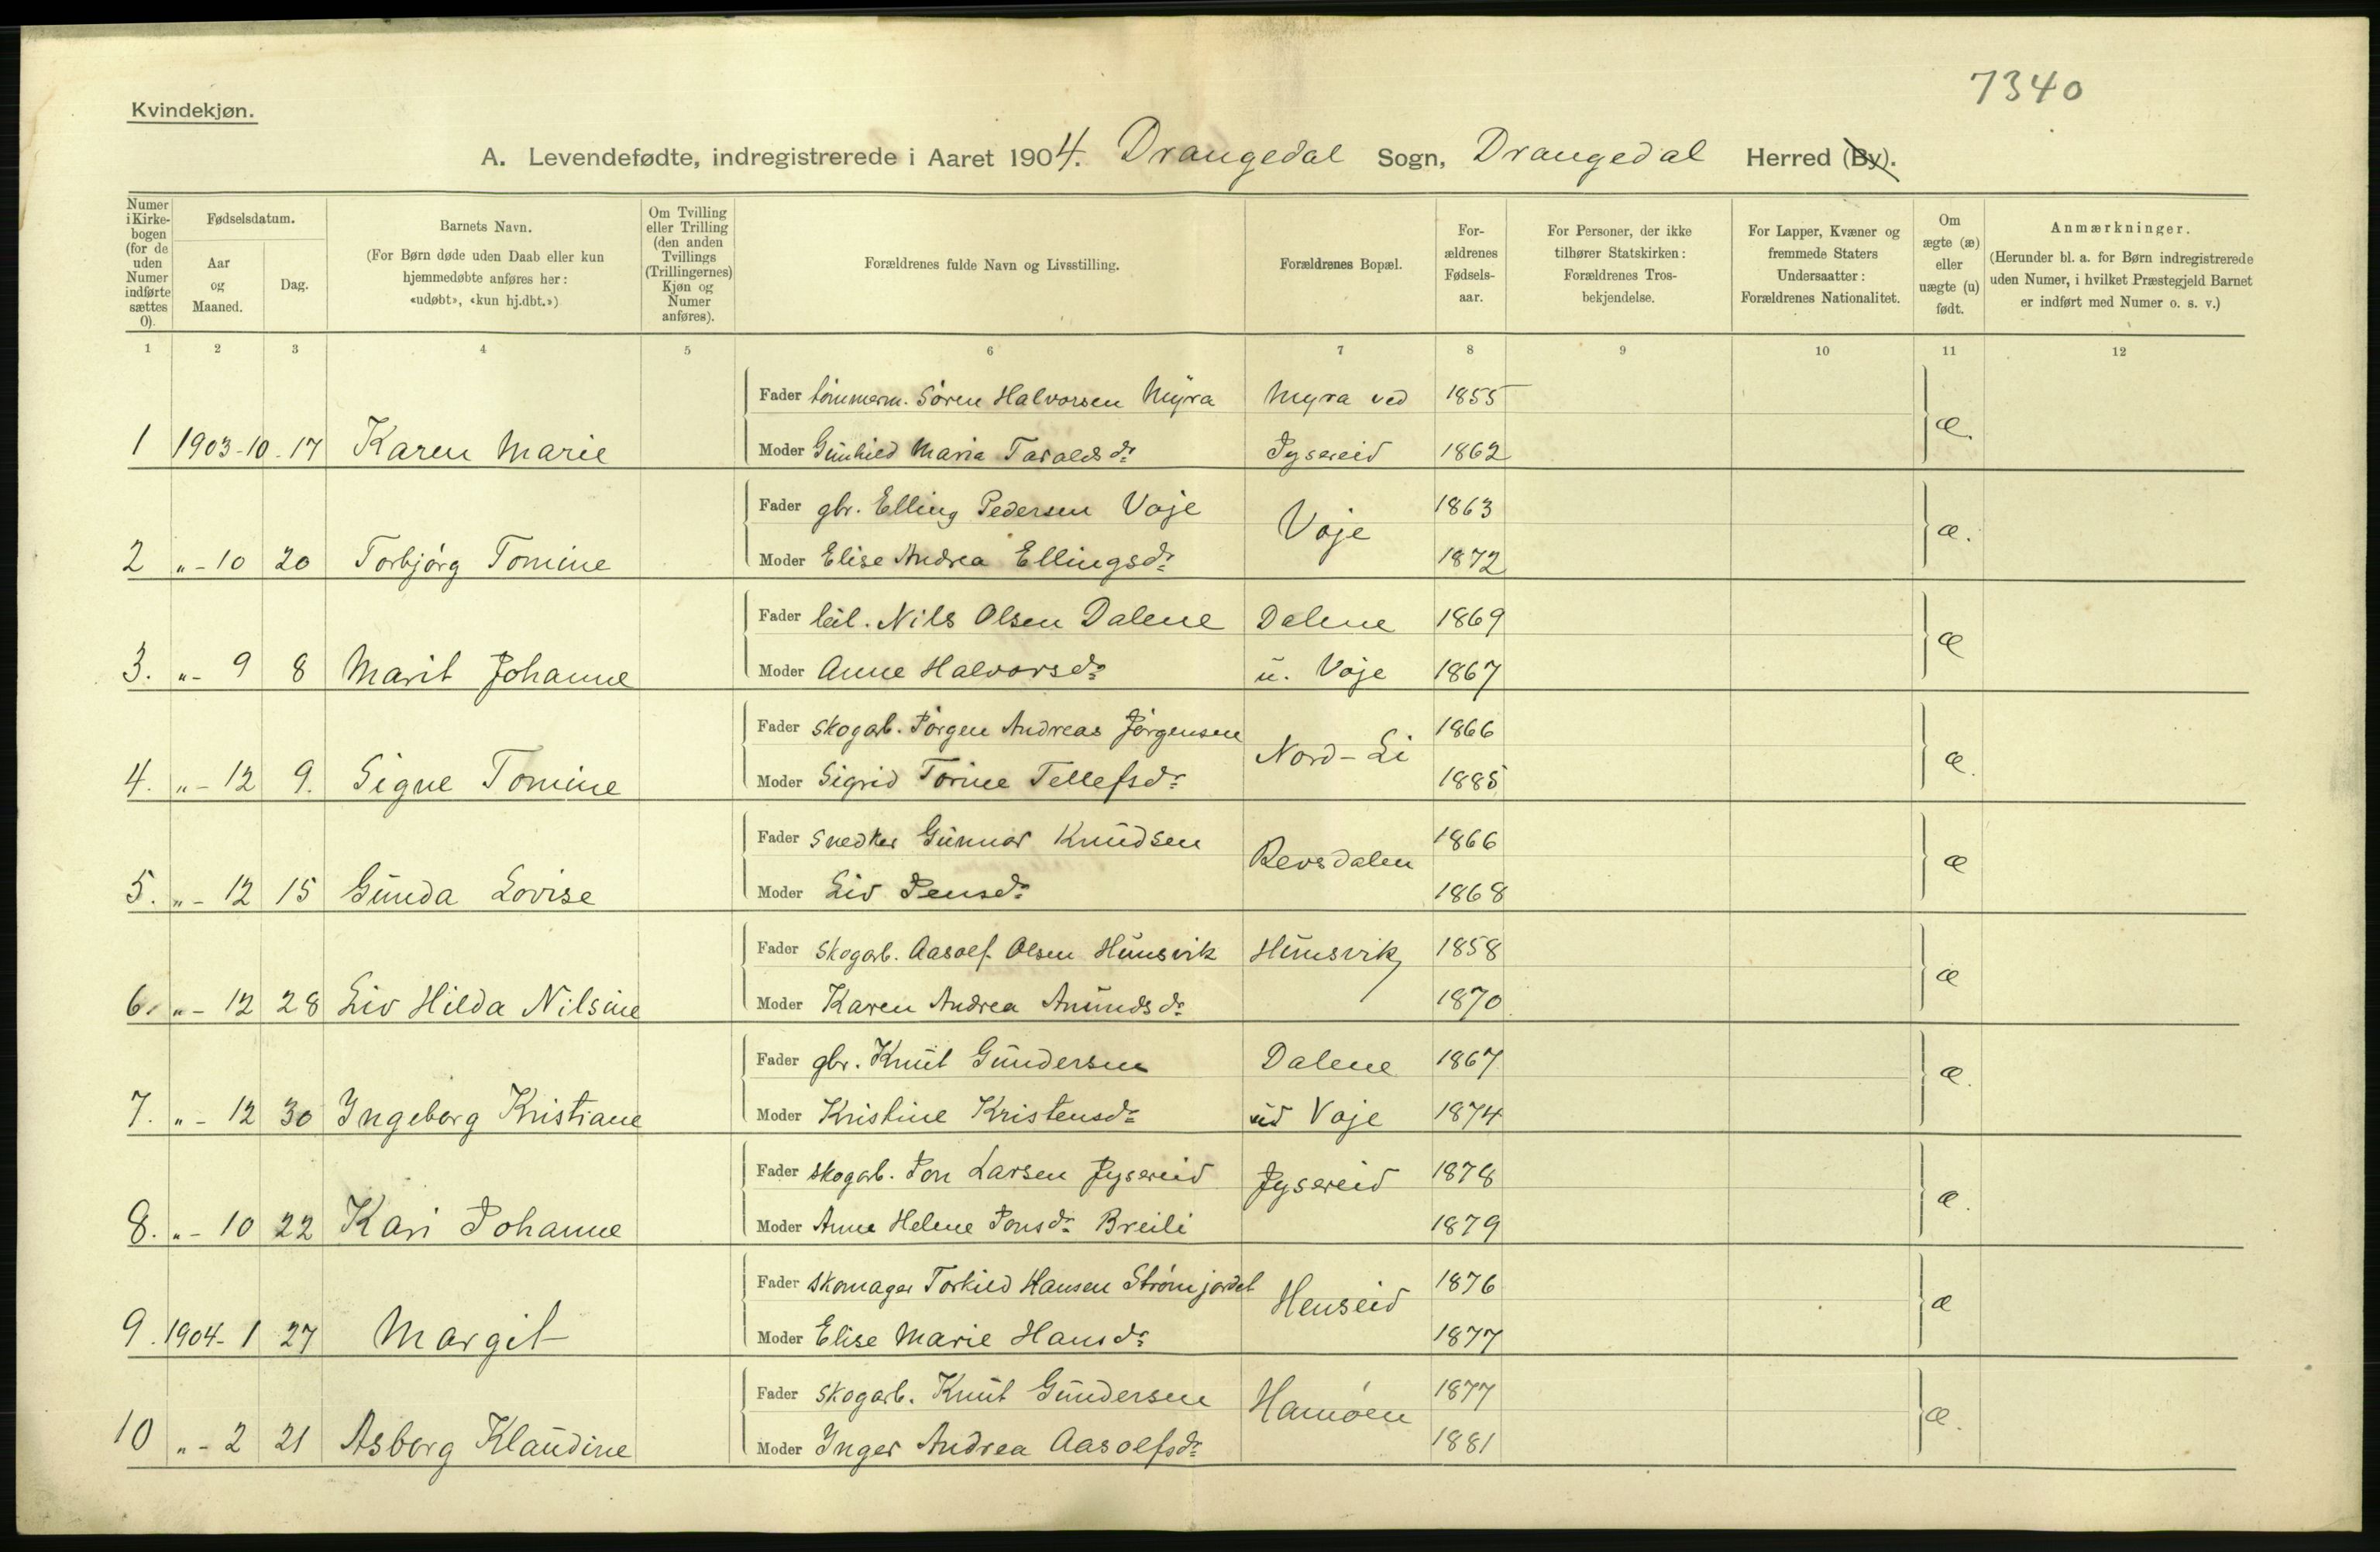 7340
Kvindekjøn.
A. Levendefødte, indregistrerede i Aaret 1904. Drangedal Sogn, Drangedal Herred (By).
Numer i Kirkebogen (for de uden Numer indførte sættes 0).
Fødselsdatum.
Aar og Maaned.
Dag.
Barnets Navn.
(For Børn døde uden Daab eller kun hjemmedøbte anføres her: «udøbt», «kun hj.dbt.»)
Om Tvilling eller Trilling (den anden Tvillings (Trillingernes) Kjøn og Numer anføres).
Forældrenes fulde Navn og Livsstilling.
Forældrenes Bopæl.
For-ældrenes Fødsels-aar.
For Personer, der ikke tilhører Statskirken: Forældrenes Tros-bekjendelse.
For Lapper, Kvæner og fremmede Staters Undersaatter: Forældrenes Nationalitet.
Om ægte (æ) eller uægte (u) født.
Anmærkninger.
(Herunder bl. a. for Børn indregistrerede uden Numer, i hvilket Præstegjeld Barnet er indført med Numer o. s. v.)
1 2 3 4 5 6 7 8 9 10 11 12
Fader tømmerm. Søren Halvorsen Myra Myra ved 1855
1 1903-10-17 Karen Marie Moder Gunhild Maria Taraldsdr Jysereid 1862 æ.
Fader gbr. Elling Pedersen Voje Voje 1863
2 "-10 20 Torbjørg Tomine Moder Elise Andrea Ellingsdr 1872 æ.
Fader leil. Nils Olsen Dalene Dalene 1869
3. "- 9 8 Marit Johanne Moder Anne Halvorsdr u. Voje 1867 æ
Fader skogarb. Jørgen Andreas Jørgensen Nord-Li 1866
4. "- 12 9. Signe Tomine Moder Sigrid Torine Tellefsdr 1885 æ.
Fader Snedker Gunnar Knudsen Revsdalen 1866
5. "- 12 15 Gunda Lovise Moder Liv Jensdr 1868 æ
Fader Skogarb. Aasolf Olsen Hunsvik Hunsvik 1858
6. "- 12 28 Liv Hilda Nilsine Moder Karen Andrea Anundsdr 1870 æ
Fader gbr. Knut Gundersen Dalene 1867
7. "- 12 30 Ingeborg Kristiane Moder Kristine Kristensdr ud Voje 1874 æ.
Fader skogarb. Jon Larsen Jysereid Jysereid 1878
8. "- 10 22 Kari Johanne Moder Anne Helene Jonsdr Breili 1879 æ.
Fader skomager Torkild Hansen Strømjordet Henseid 1876
9. 1904- 1 27 Margit Moder Elise Marie Hansdr 1877 æ
Fader skogarb. Knut Gundersen Hamøen 1877
10 "- 2 21 Asborg Klaudine Moder Inger Andrea Aasolfsdr 1881 æ.